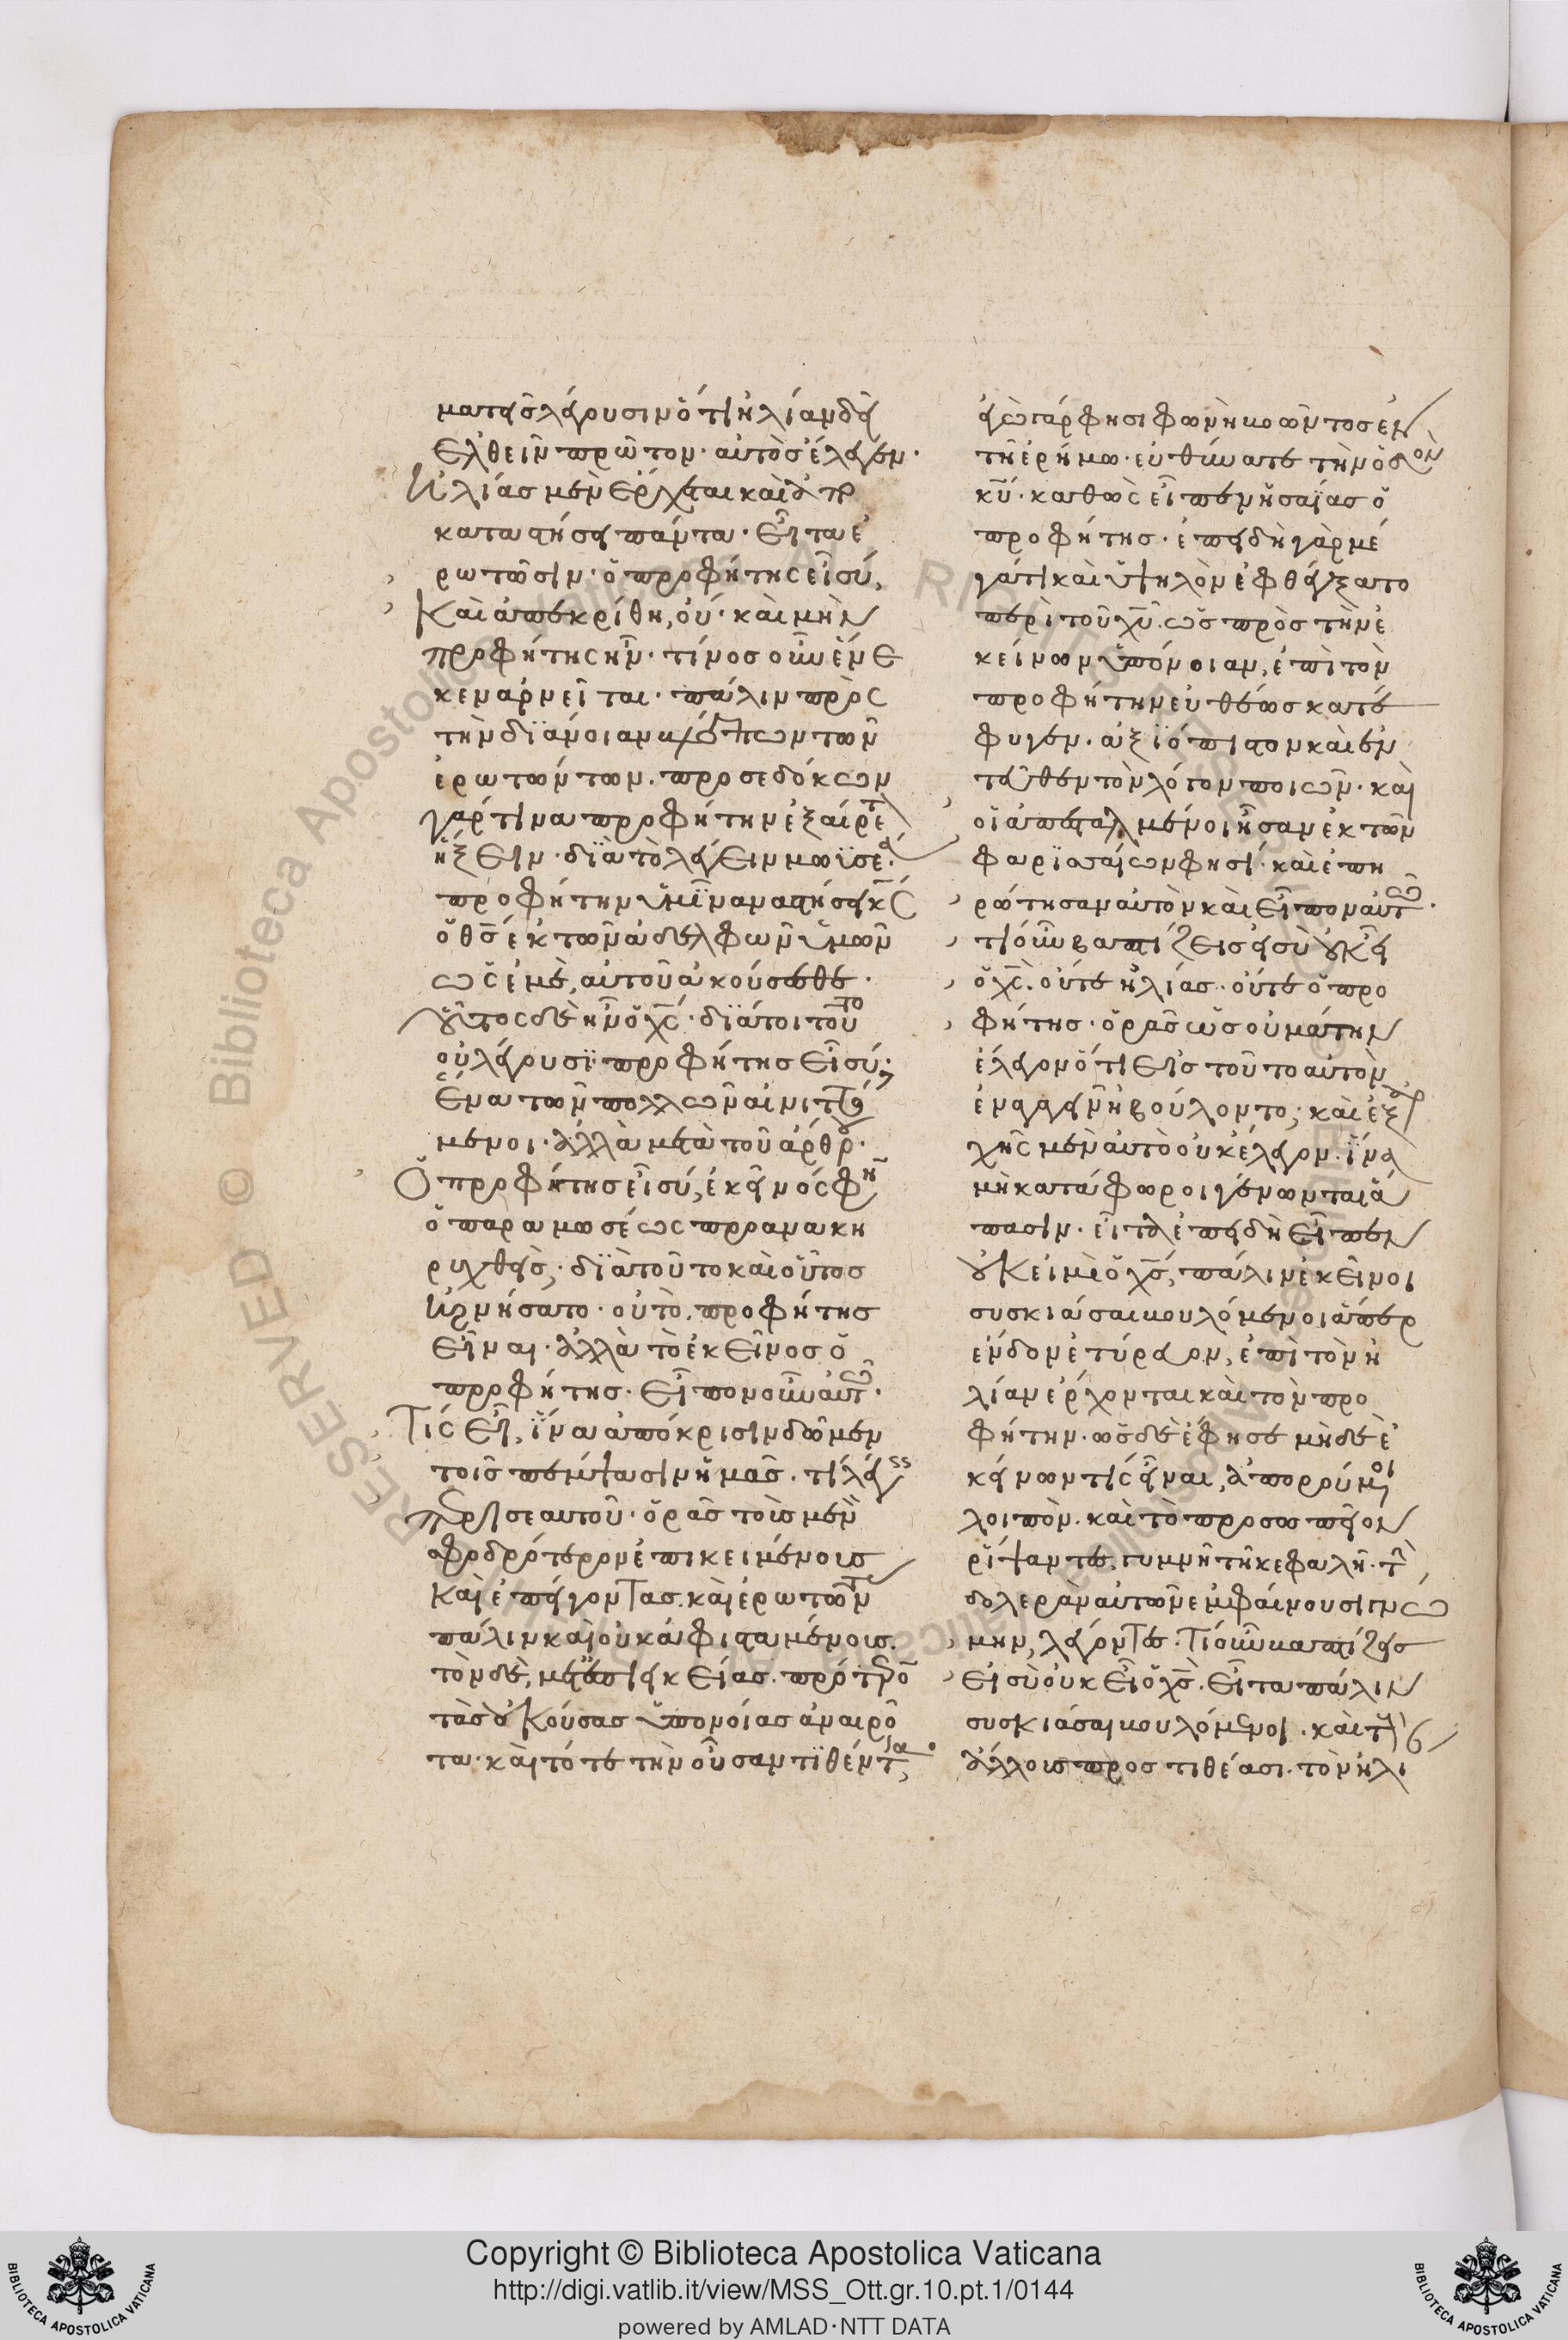 ματεῖς λέγουσιν ὅτι ἠλίαν δεῖ
ἐλθεῖν πρῶτον· αὐτὸς ἔλεγεν·
Ἠλίας μὲν ἔρχεται καὶ
καταστήσει πάντα· εἶτα ἐ
ρωτῶσιν· ὁ προφήτης εἶ σύ,
Καὶ ἀπεκρίθη, οὔ· καὶ μὴν
προφήτης ἦν· τίνος οὖν ἕνε
κεν ἀρνεῖται· πάλιν πρὸς
τὴν διάνοιαν τῶν
ἐρωτώντων· προσεδόκων
γάρ τινα προφήτην ἐξαίρετ
ἥξειν· διὰ τὸ λέγειν μωϋσέα·
προφήτην ὑμῖν ἀναστήσει κς
ὁ θς ἐκ τῶν ἀδελφῶν ὑμῶν
ὡς ἐμέ, αὐτοῦ ἀκούσεσθε·
οὗτος δὲ ἦν ὁ χς· διάτοι τοῦτο
οὐ λέγουσι· προφήτης εἶ σύ;
ἕνα τῶν πολλῶν αἰνιττό
μενοι· ἀλλὰ μετὰ τοῦ ἄρθρου·
Ὁ προφήτης εἶ σύ, ἐκεῖνός φη
ὁ παρὰ μωσέως προανακη
ρυχθείς· διὰ τοῦτο καὶ οὗτος
ἠρνήσατο· οὐ τὸ, προφήτης
εἶναι· ἀλλὰ τὸ ἐκεῖνος ὁ
προφήτης· εἶπον οὖν αὐτῶ·
Τίς εἶ, ἵνα ἀπόκρισιν δῶμεν
τοῖς πέμψασιν ἡμᾶς· τί λέγεις
περὶ σεαυτοῦ· ὁρᾶς τοὺς μὲν
σφοδρότερον ἐπικειμένους
καὶ ἐπείγοντας· καὶ ἐρωτῶντ
πάλιν καὶ οὐκ ἀφισταμένους·
τὸν δὲ, μετ᾽ ἐπιεικείας· πρότερον
τὰς οὐκ οὔσας ὑπονοίας ἀναιροῦ
τα· καὶ τότε τὴν οὖσαν τιθέντα·
ἐγώ γάρ φησι φωνὴ βοῶντος ἐν
τῆ ἐρήμω· εὐθύνατε τὴν ὁδὸν
κυ· καθὼς εἶπεν ἡσαΐας ὁ
προφήτης· ἐπειδὴ γὰρ μέ
γά τι καὶ ὑψηλὸν ἐφθέγξατο
περὶ τοῦ χυ· ὡς πρὸς τὴν ἐ
κείνων ὑπόνοιαν, ἐπὶ τὸν
προφήτην εὐθέως κατέ
φυγεν· ἀξιόπιστον καὶ ἐν
τεῦθεν τὸν λόγον ποιῶν· καὶ
οἱ ἀπεσταλμένοι ἦσαν ἐκ τῶν
φαρισαίων φησί· καὶ ἐπη
ρώτησαν αὐτὸν καὶ εἶπον αὐτῶ·
τί οὖν βαπτίζεις εἰ σὺ οὐκ εἶ
ὁ χς· οὔτε ἠλίας· οὔτε ὁ προ
φήτης· ὁρᾶς ὡς οὐ μάτην
ἔλεγον ὅτι εἰς τοῦτο αὐτὸν
ἐναγαγεῖν ἠβούλοντο; καὶ ἐξ ἀρ
χῆς μὲν αὐτὸ οὐκ ἔλεγον· ἵνα
μὴ κατάφωροι γένωνται ἅ
πασιν· εἶτα ἐπειδὴ εἶπεν
οὐκ εἰμὶ ὁ χς, πάλιν ἐκεῖνοι
συσκιάσαι βουλόμενοι ἅπερ
ἔνδον ἐτύρευον, ἐπὶ τὸν ἠ
λίαν ἔρχονται καὶ τὸν προ
φήτην· ὡς δὲ ἔφησε μηδὲ ἐ
κείνων τίς εἶναι, ἀπορούμενοι
λοιπὸν· καὶ τὸ προσωπεῖον
ῥίψαντες, γυμνῆ τῆ κεφαλῆ· τὴν
δολερὰν αὐτῶν ἐμφαίνουσι γνώ
μην, λέγοντες· Τί οὖν βαπτίζεις
εἰ σὺ οὐκ εἶ ὁ χς· εἶτα πάλιν
συσκιάσαι βουλόμενοι· καὶ τοὺς
ἄλλους προστιθέασι· τὸν ἠλί
Copyright © Biblioteca Apostolica Vaticana
http://digi.vatlib.it/view/MSS_Ott.gr.10.pt.1/0144
powered by AMLAD·NTT DATA